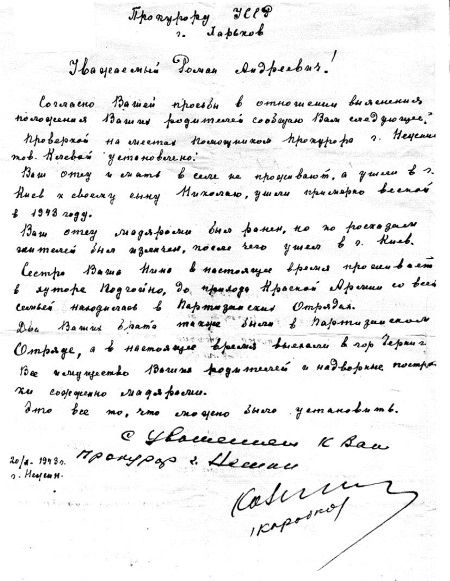 Прокурору УССР
г. Харьков
Уважаемый Роман Андреевич!
Согласно Вашей просьбы в отношении выяснения
положения Ваших родителей сообщаю Вам следующее:
Проверкой на местах Помощником Прокурора г. Нежин
тов. Клевой установлено:
Ваш отец и мать в селе не проживают, а ушли в г.
Киев к своему сыну Николаю, ушли примерно весной
в 1943 году.
Ваш отец мадярами был ранен, но по рассказам
жителей был излечен, после чего ушел в г. Киев.
Сестра Ваша Нина в настоящее время проживает
в хуторе Подгайно, до прихода Красной Армии со всей
семьей находилась в Партизанских Отрядах.
Два Ваших брата также были в Партизанском
Отряде, а в настоящее время выехали в гор. Черниг
Все имущество Ваших родителей и надворные построй
ки сожжено мадярами.
Это все то, что можно было установить.
С уважением к Вам
Прокурор г. Нежин
20/X-1943 г.
г. Нежин.
(Коробко)